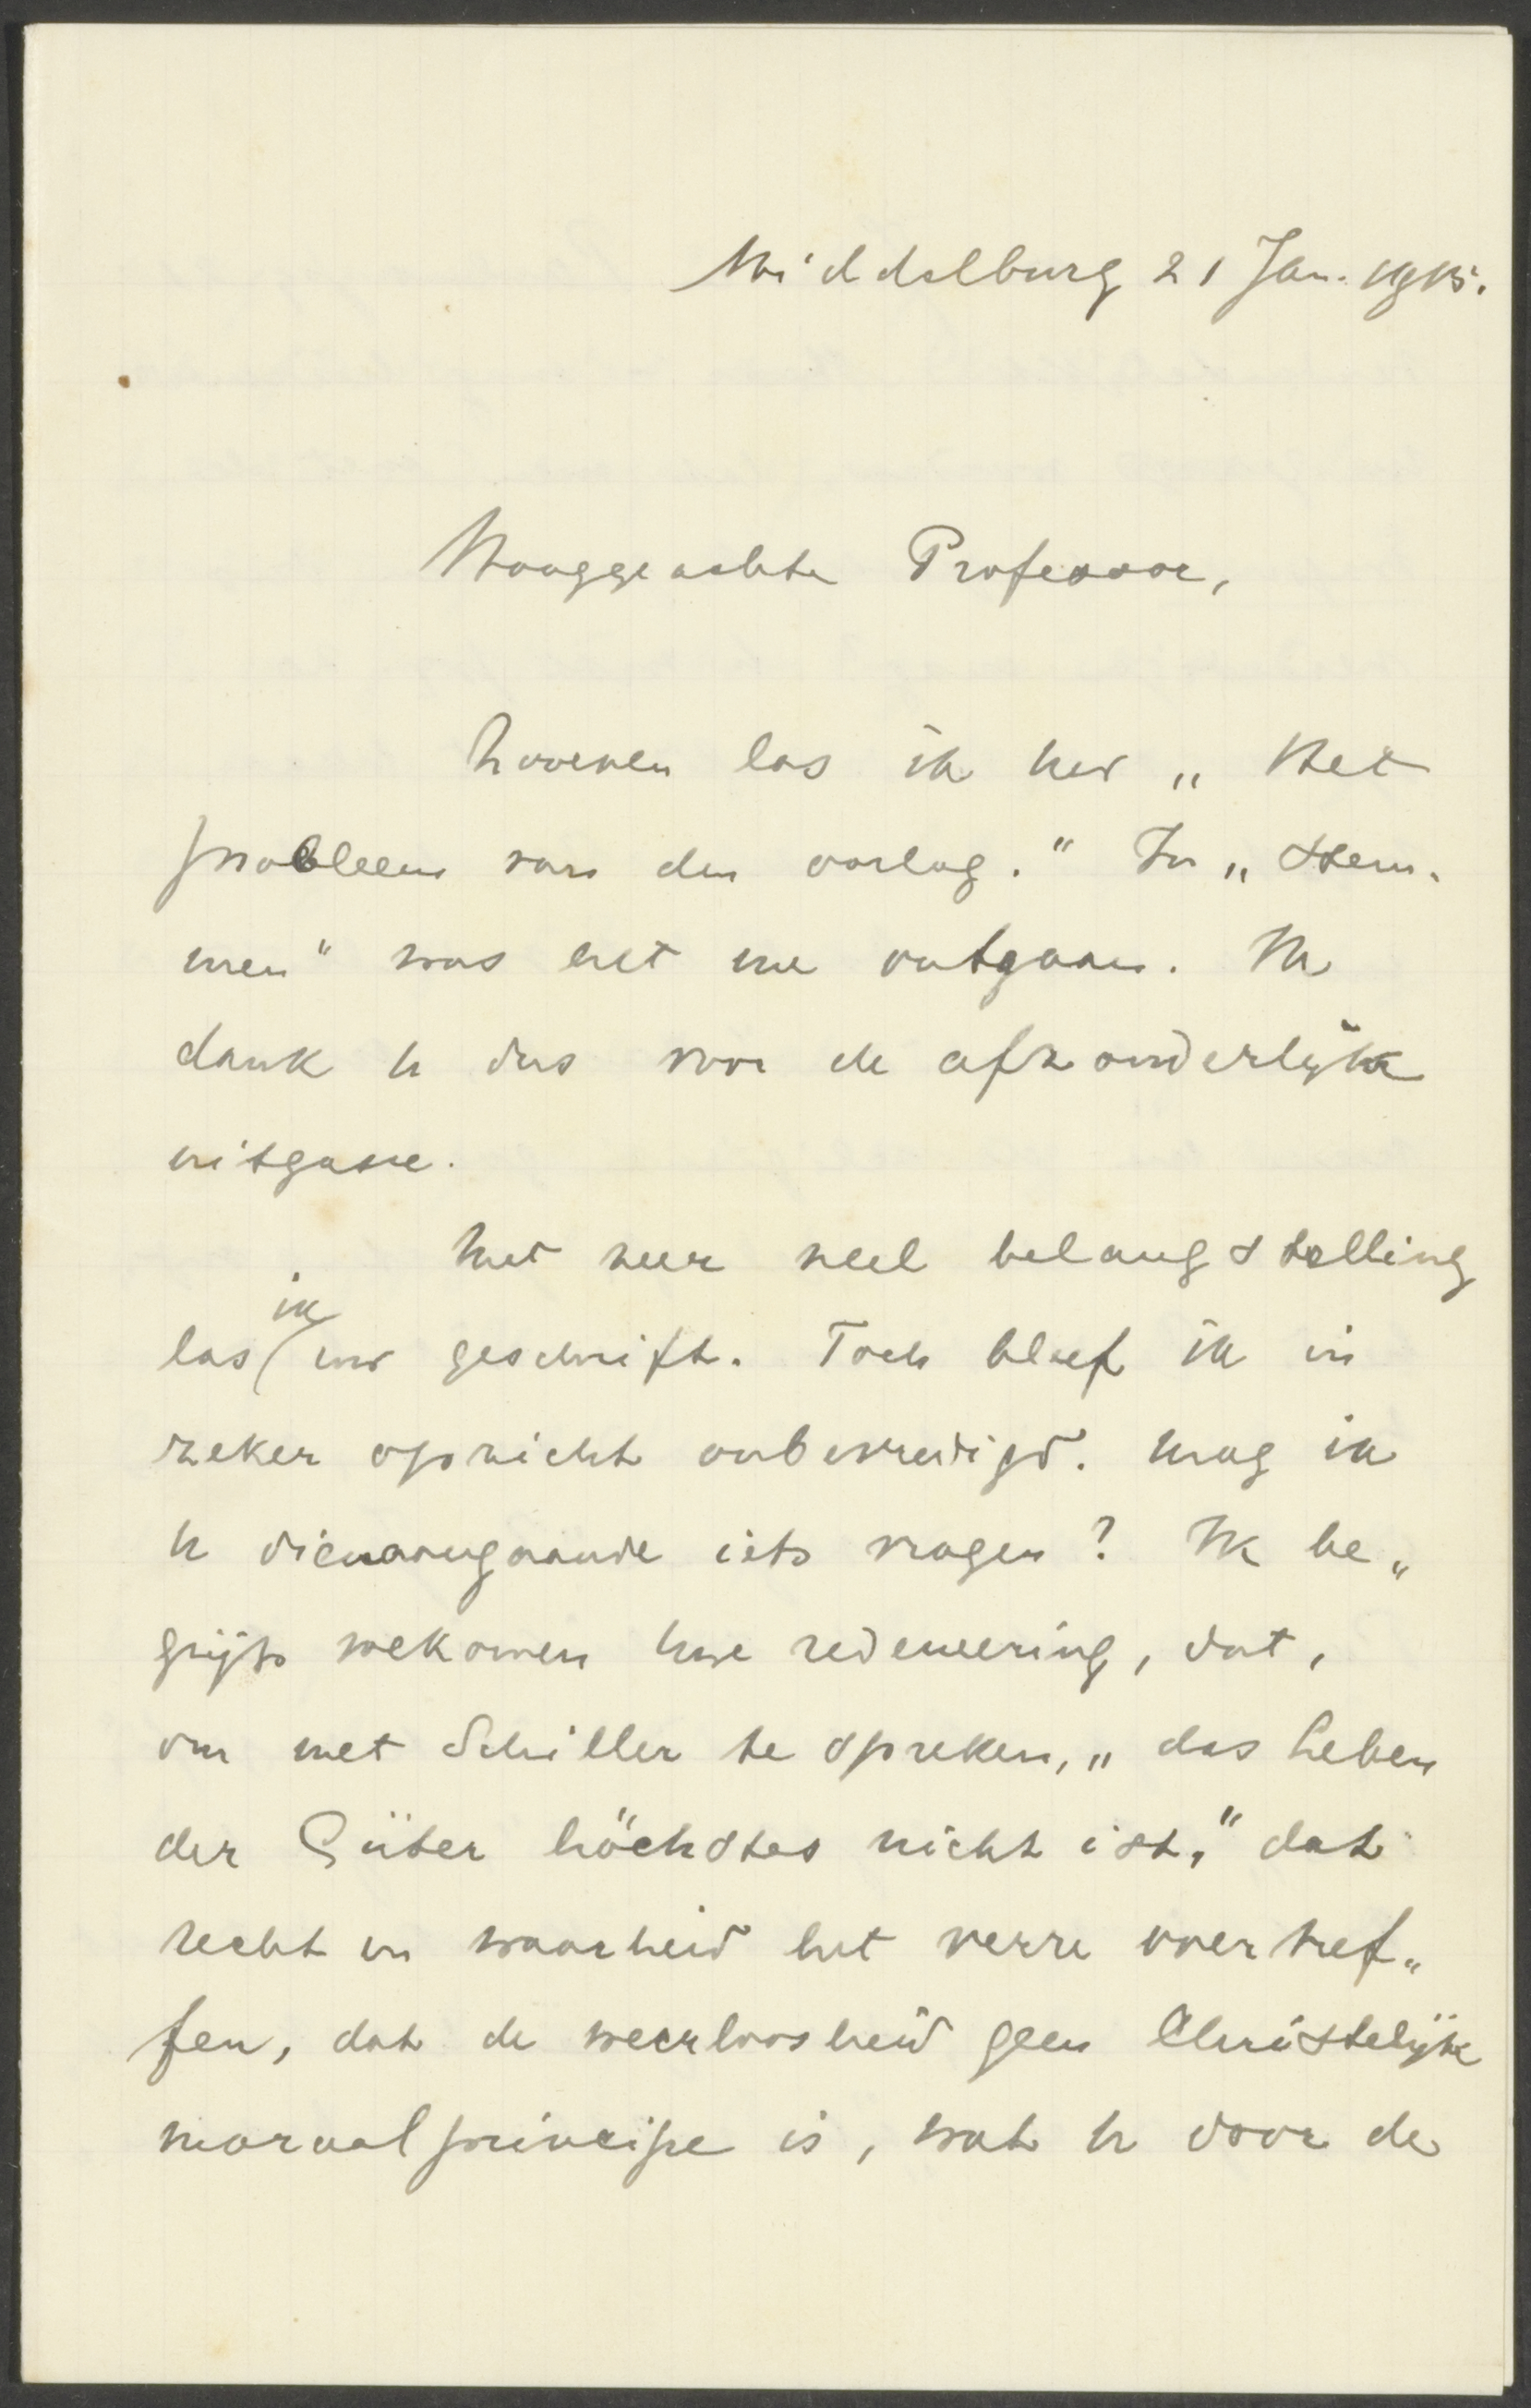 Middelburg 21 Jan. 1915.
Hooggeachte Professor,
Zooeven las ik uw „Het
probleem van den oorlog." In „Stem-
men" was het me ontgaan. Ik
dank u dus voor de afzonderlijke
uitgave.
Met zeer veel belangstelling
las ik uw geschrift. Toch bleef ik in
zeker opzicht onbevredigd. Mag ik
u dienaangaande iets vragen? Ik be„
grijp volkomen uwe redeneering, dat,
om met Schiller te spreken, „das Leben
der Güter höchstes nicht ist," dat
recht en waarheid het verre overtref„
fen, dat de weerloosheid geen Christelijk
moraalprincipe is, wat u door de